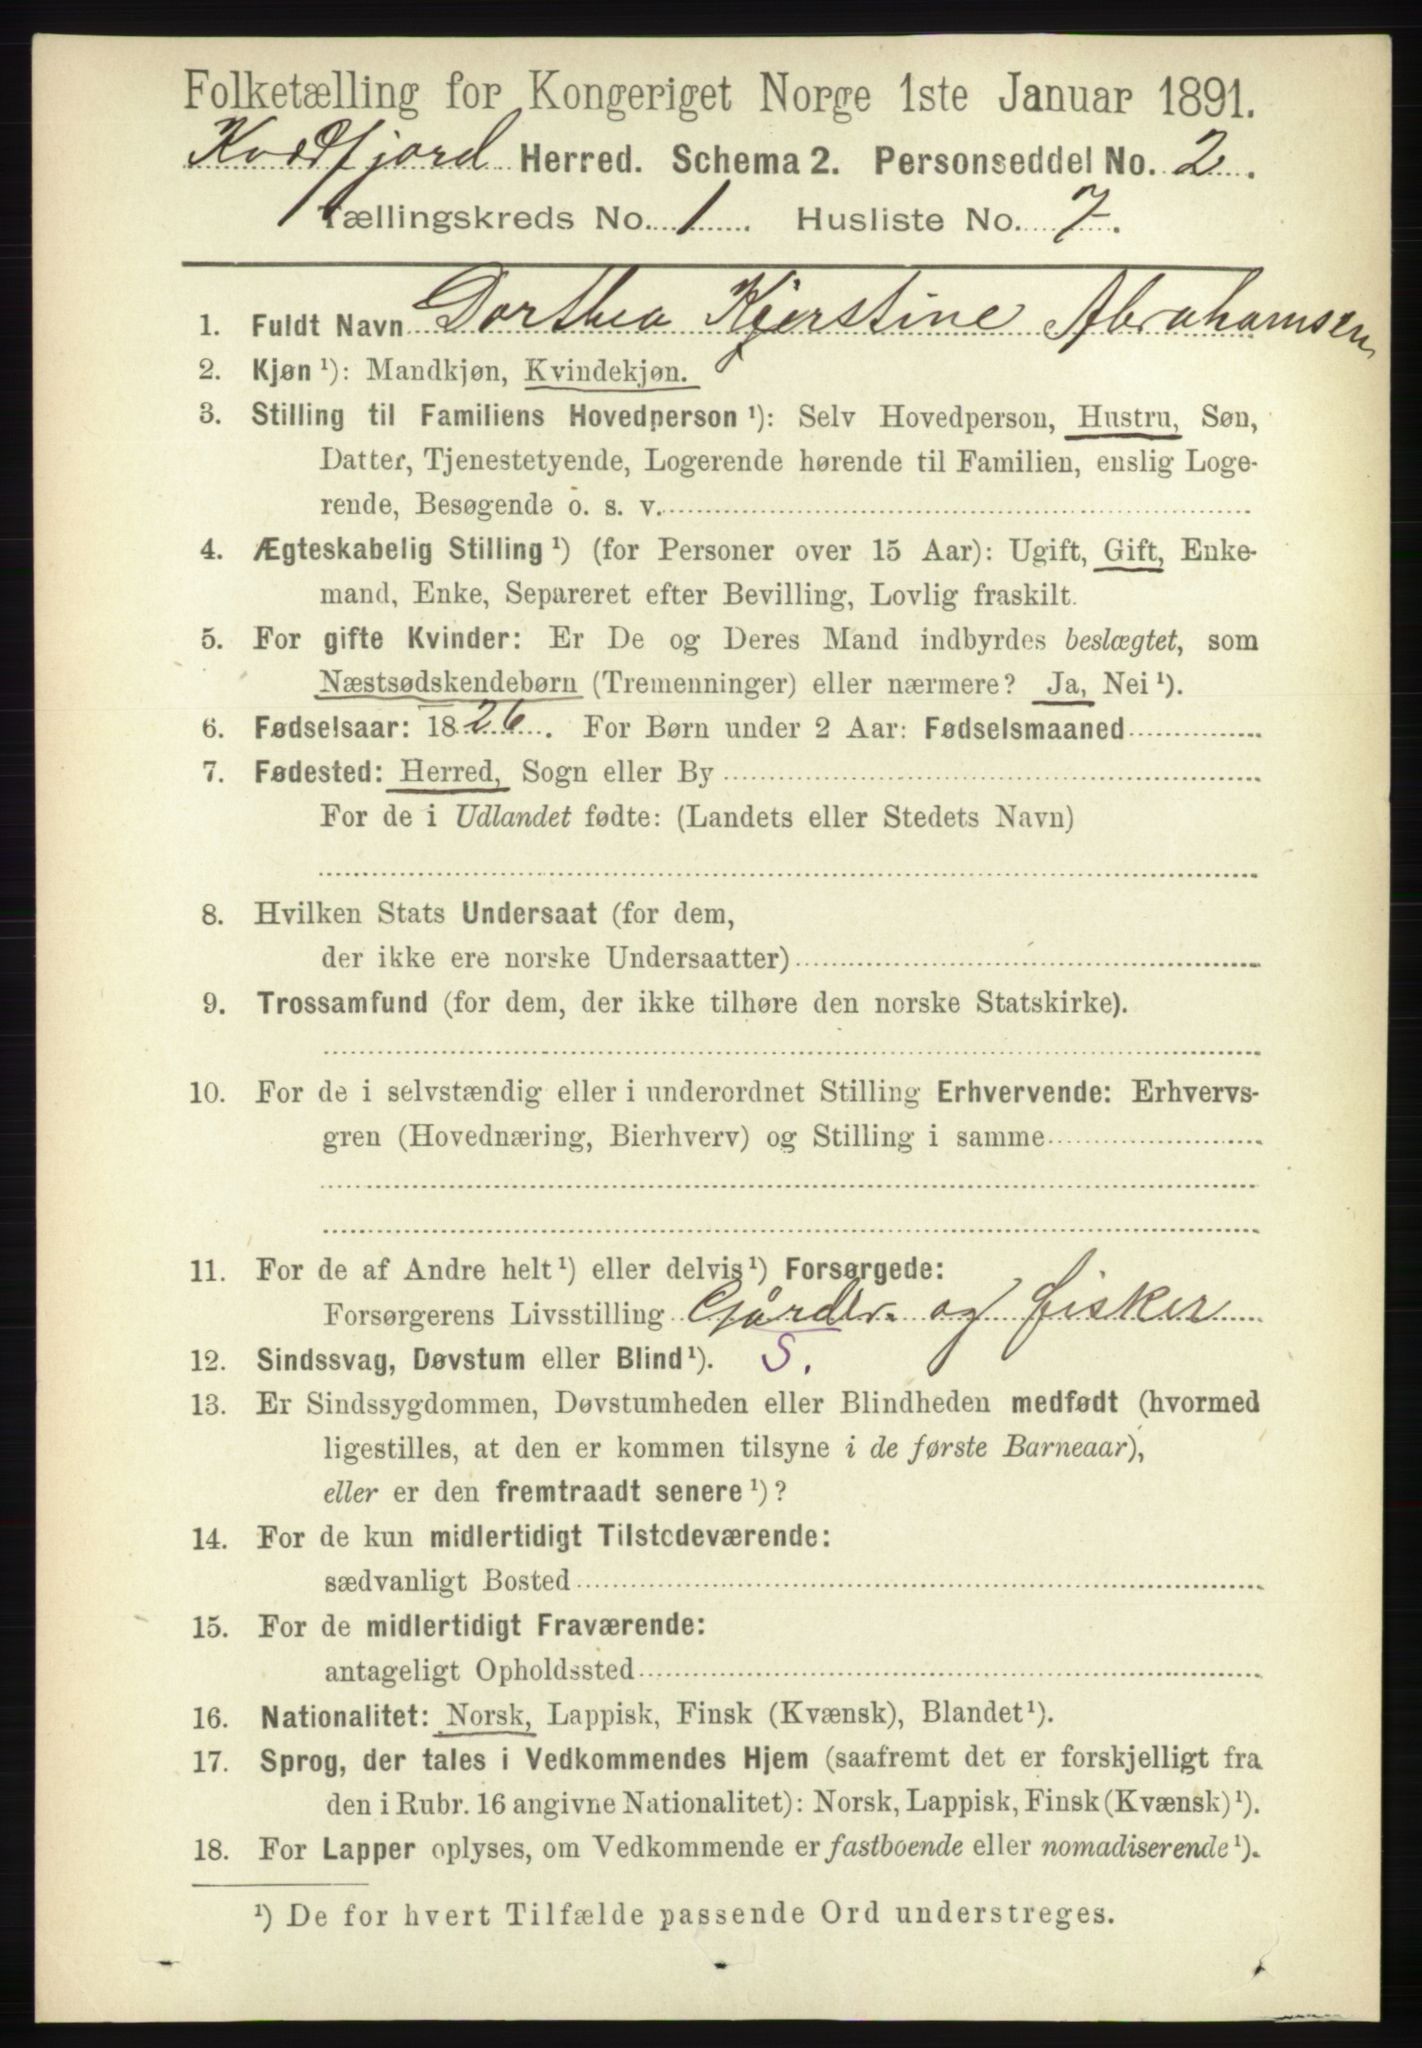 Folketælling for Kongeriget Norge 1ste Januar 1891.
Kvædfjord Herred. Schema 2. Personseddel No. 2.
Tællingskreds No. 1. Husliste No. 7.
1. Fuldt Navn Dorthea Kjerstine Abrahamsen
2. Kjøn ¹): Mandkjøn, Kvindekjøn.
3. Stilling til Familiens Hovedperson ¹): Selv Hovedperson, Hustru, Søn,
Datter, Tjenestetyende, Logerende hørende til Familien, enslig Loge-
rende, Besøgende o. s. v.
4. Ægteskabelig Stilling ¹) (for Personer over 15 Aar): Ugift, Gift, Enke-
mand, Enke, Separeret efter Bevilling, Lovlig fraskilt.
5. For gifte Kvinder: Er De og Deres Mand indbyrdes beslægtet, som
Næstsødskendebørn (Tremenninger) eller nærmere? Ja, Nei ¹).
6. Fødselsaar: 1826. For Børn under 2 Aar: Fødselsmaaned
7. Fødested: Herred, Sogn eller By
For de i Udlandet fødte: (Landets eller Stedets Navn)
8. Hvilken Stats Undersaat (for dem,
der ikke ere norske Undersaatter)
9. Trossamfund (for dem, der ikke tilhøre den norske Statskirke).
10. For de i selvstændig eller i underordnet Stilling Erhvervende: Erhvervs-
gren (Hovednæring, Bierhverv) og Stilling i samme
11. For de af Andre helt ¹) eller delvis ¹) Forsørgede:
Forsørgerens Livsstilling Gårdbr. og fisker
12. Sindssvag, Døvstum eller Blind ¹). S.
13. Er Sindssygdommen, Døvstumheden eller Blindheden medfødt (hvormed
ligestilles, at den er kommen tilsyne i de første Barneaar),
eller er den fremtraadt senere ¹)?
14. For de kun midlertidigt Tilstedeværende:
sædvanligt Bosted
15. For de midlertidigt Fraværende:
antageligt Opholdssted
16. Nationalitet: Norsk, Lappisk, Finsk (Kvænsk), Blandet ¹).
17. Sprog, der tales i Vedkommendes Hjem (saafremt det er forskjelligt fra
den i Rubr. 16 angivne Nationalitet): Norsk, Lappisk, Finsk (Kvænsk) ¹).
18. For Lapper oplyses, om Vedkommende er fastboende eller nomadiserende ¹).
¹) De for hvert Tilfælde passende Ord understreges.